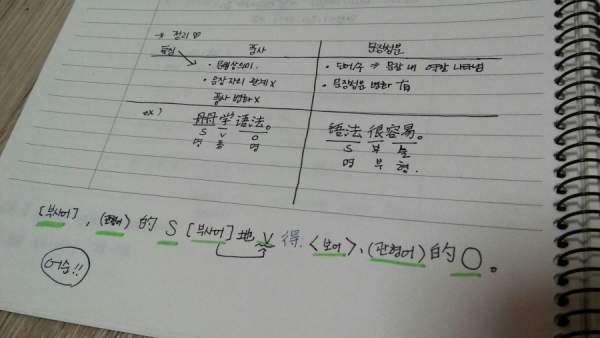 → 정리
특징 품사 문장성분
· 문법상의미. · 도어/수 → 문장 내 역할 나타냄
· 문장 자리 관계 X · 문장성분 변화 有
품사 변화 X
ex) 丹丹学语法。 语法很容易。
S V O S 부 술
명 동 명 명 부 형.
[부사어], (관형어) 的 S [부사어] 地 V 得 <보어>, (관형어) 的 O。
어순!!